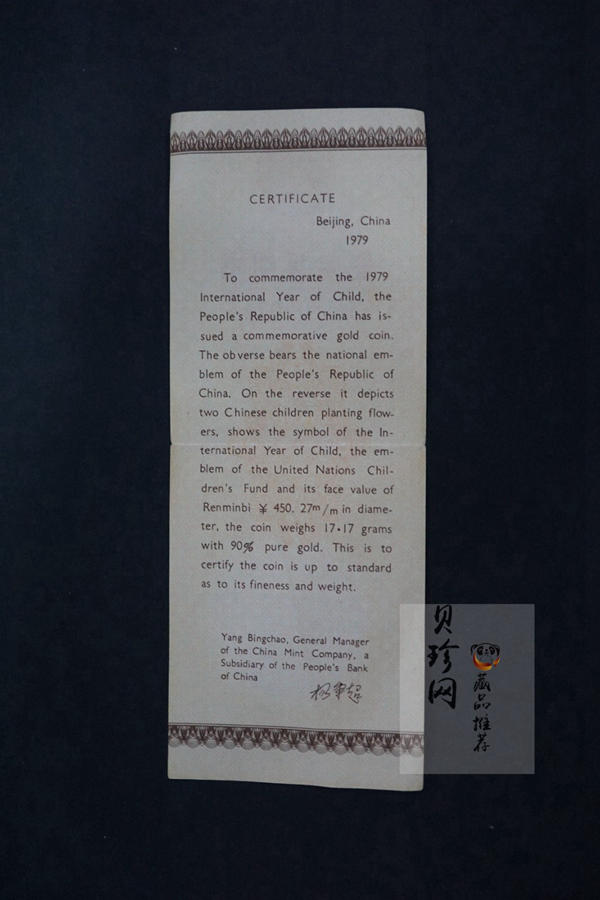 CERTIFICATE
Beijing, China
1979
To commemorate the 1979
International Year of Child, the
People's Republic of China has is-
sued a commemorative gold coin.
The obverse bears the national em-
blem of the People's Republic of
China. On the reverse it depicts
two Chinese children planting flow-
ers, shows the symbol of the In-
ternational Year of Child, the em-
blem of the United Nations Chil-
dren's Fund and its face value of
Renminbi ¥ 450. 27m/m in diame-
ter, the coin weighs 17·17 grams
with 90% pure gold. This is to
certify the coin is up to standard
as to its fineness and weight.
Yang Bingchao, General Manager
of the China Mint Company, a
Subsidiary of the People's Bank
of China
杨秉超
贝珍网
藏品推荐